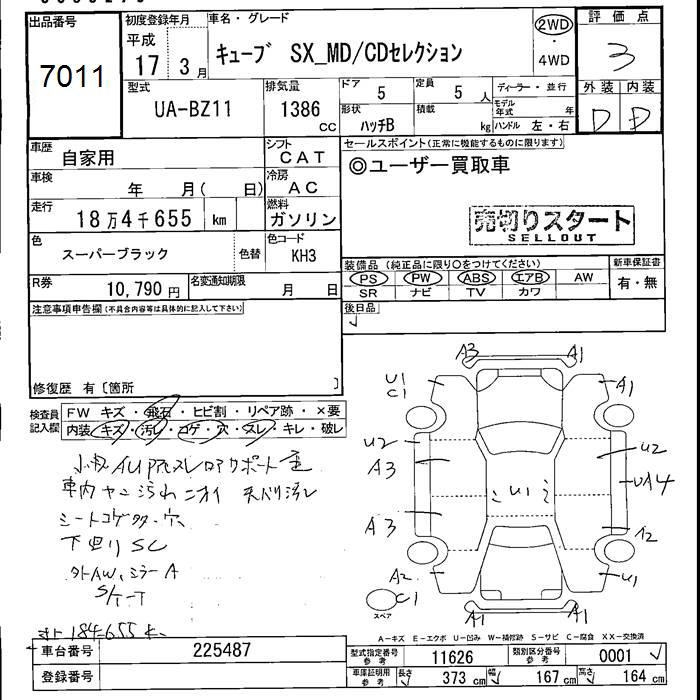 出品番号
7011
初度登録年月
平成
17 3月
車名・グレード
キューブ SX_MD/CDセレクション
2WD
・
4WD
評価点
3
外装 内装
D D
型式
UA-BZ11
排気量
1386
cc
ドア 5
定員 5 人
ディーラー・並行
形状
ハッチB
積載
kg
モデル年式 年
ハンドル 左・右
車歴
自家用
シフト
CAT
車検
年 月( 日)
冷房
AC
走行
18万4千655 km
燃料
ガソリン
色
スーパーブラック
色替
色コード
KH3
R券
10,790円
名変通知期限
月 日
セールスポイント(正常に機能するものに限ります)
◎ユーザー買取車
売切りスタート
SELLOUT
装備品(純正品に限り○をつけてください)
新車保証書
PS PW ABS エアB AW
有・無
SR ナビ TV カワ
後日品
注意事項申告欄(不具合内容等は具体的に記入して下さい)
修復歴 有〔箇所 〕
検査員
記入欄
FW キズ・飛石・ヒビ割・リペア跡・×要
内装 キズ・汚レ・コゲ・穴・スレ・キレ・破レ
車内ヤニ汚れ ニオイ 天バリ汚レ
シートコゲ 穴
下回りSC
外AW、ミラーA
S/T-T
184655
A3 A1
U1
C1
A1
U2
A3
U2
UA4
U1
A3
A2
A2
U1
C1
スペア
A1 A1
A-キズ E-エクボ U-凹み W-補修跡 S-サビ C-腐食 XX-交換済
車台番号
225487
登録番号
型式指定番号
参考
11626
類別区分番号
参考
0001
車庫証明用
参考
長さ
373 cm
幅
167 cm
高さ
164 cm